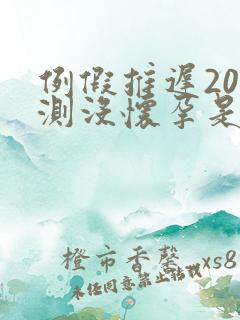 例假推遲20
測沒懷孕是
橙市香馨 xs8
未经同意禁止转载